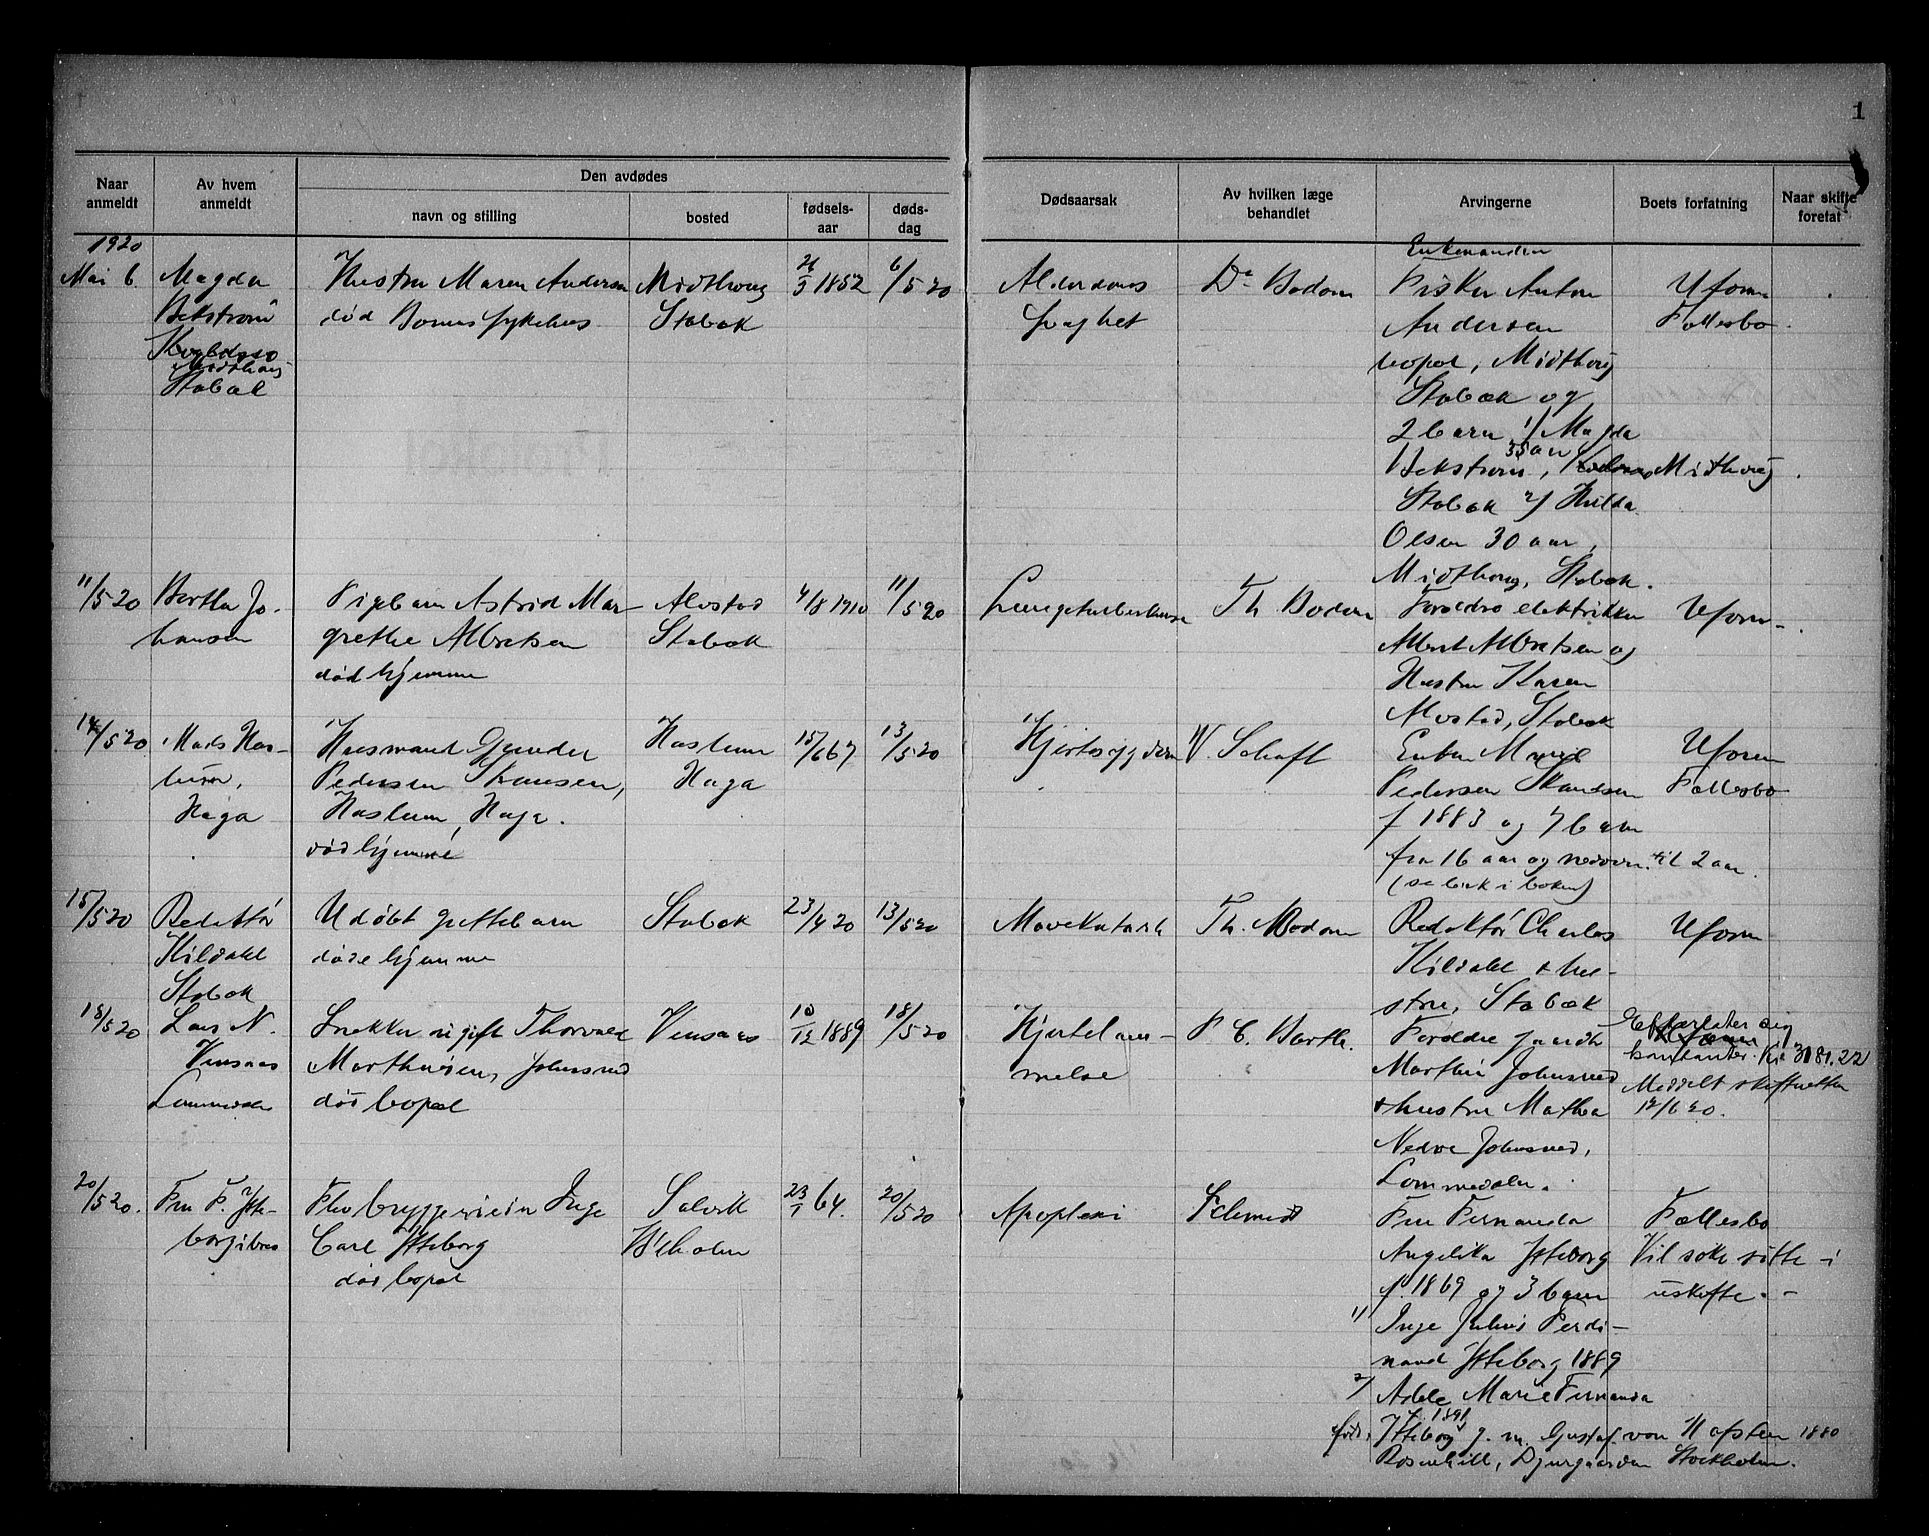 1
Naar anmeldt
Av hvem anmeldt
Den avdødes
navn og stilling
bosted
fødsels-aar
døds-dag
Dødsaarsak
Av hvilken læge behandlet
Arvingerne
Boets forfatning
Naar skifte foretat
1920
Mai 6.
Magda
Bekstrøm
Midthaug
Stabæk
Hustru Maren Andersen
død Bærums sykehus
Midthaug
Stabæk
1852
6/5 20
Alderdoms
svaghet
Dr Bodom
Enkemanden
Fisker Anton
Andersen
bopæl, Midthaug
Stabæk og
2 barn 1/ Magda
Bekstrøm, 35 aar, Midthaug
Stabæk 2/ Hilda
Olsen 30 aar,
Midthaug, Stabæk.
Uform.
Fællesbo.
11/5 20
Bertha Jo-
hansen
Pigebarn Astrid Mar-
grethe Albretsen
død hjemme
Stabæk
4/8 1910
11/5 20
Lungetuberkulose
Th Bodom
Forældre elektriker
Albert Albretsen og
Hustru Karen
Stabæk
Uform.
14/5 20
Mads Has-
lum,
Haga
Husmand Gunder
Pedersen Skansen,
Haslum, Haga.
død hjemme
Haslum
Haga
15/6 67
13/5 20
Hjertesygdom
W. Schaft
Enken Marie
Pedersen Skansen
f 1883 og 7 barn
fra 16 aar og nedover til 2 aar.
(se bak i boken)
Uform
Fællesbo
15/5 20
Redaktør
Kildahl
Stabæk
Udøbt guttebarn
døde hjemme
Stabæk
23/4 20
13/5 20
Mavekatarh
Th. Bodom
Redaktør Charles
Kildahl + hu-
stru, Stabæk
Uform
18/5 20
Lars N.
Vensaas
Lommedalen
Snekker ugift Thorvald
Marthinsen, Johnsrud
død bopæl
Vensaas
10/12 1889
18/5 20
Hjertelam-
melse
P C. Barth.
Forældre gaardbr
Martin Johnsrud
+ hustru Mathea
Nedre Johnsrud,
Lommedalen.
Efterlater sig
kontanter. Kr 3181.22
Meddelt skifteretten
12/6 20.
20/5 20.
Fru F. Ytte-
borg ibid
Ølbryggerieier Inge
Carl Ytteborg
død bopæl
Salvik
B'holm
23/1 64.
20/5 20
Apoplexi
Schmidt
Fru Fernanda
Angelika Ytteborg
f. 1869 og 3 barn
1/ Inge Julius Ferdi-
nand Ytteborg 1889
2/ Adele Marie Fernanda
født Ytteborg f. 1891 g. m. Gustaf von Hofsten 1880
Rosenhill, Djurgaarden Stockholm.
Fællesbo
Vil søke sitte i
uskifte.